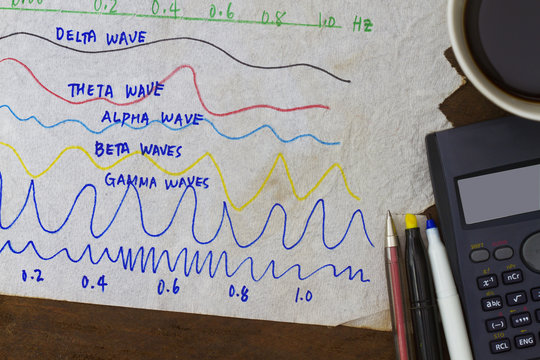 0.2 0.4 0.6 0.8 1.0 Hz
DELTA WAVE
THETA WAVE
ALPHA WAVE
BETA WAVES
GAMMA WAVES
0.2 0.4 0.6 0.8 1.0
SHIFT
RCL ENG